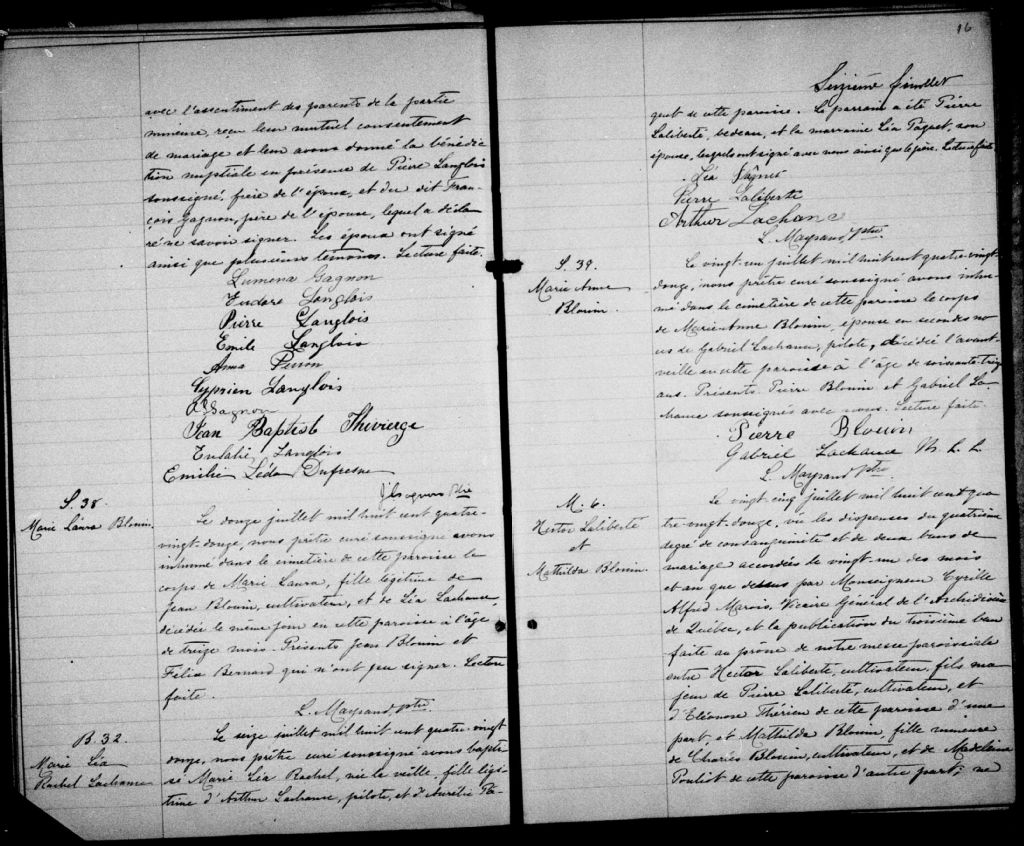 avec l'assentiment des parents de la partie
mineure, reçu leur mutuel consentement
de mariage et leur avons donné la bénédic
tion nuptiale en présence de Pierre Langlois
soussigné, frère de l'époux, et du dit Fran-
çois Gagnon, père de l'épouse, lequel a décla
ré ne savoir signer. Les époux ont signé
ainsi que plusieurs témoins. Lecture faite.
Lumena Gagnon
Eudore Langlois
Pierre Langlois
Emile Langlois
Anna Perron
Cyprien Langlois
Gagnon
Jean Baptiste Thivierge
Eulalie Langlois
Emilie Léda Dufresne
Ptre
S. 38.
Marie Laura Blouin.
Le douze juillet mil huit cent quatre-
vingt-douze, nous prêtre curé soussigné avons
inhumé dans le cimetière de cette paroisse le
corps de Marie Laura, fille légitime de
Jean Blouin, cultivateur, et de Léa Lachance,
décédée le même jour en cette paroisse à l'âge
de treize mois. Présents Jean Blouin et
Félix Bernard qui n'ont pu signer. Lecture
faite.
L. Mayrand ptre
B. 32.
Marie Léa
Rachel Lachance
Le seize juillet mil huit cent quatre-vingt
douze, nous prêtre curé soussigné avons bapti
sé Marie Léa Rachel, née la veille, fille légi-
time d'Arthur Lachance, pilote, et d'Aurélie Pa-
16
Seizième feuillet
quet de cette paroisse. Le parrain a été Pierre
Laliberté, bedeau, et la marraine Léa Paquet, son
épouse, lesquels ont signé avec nous ainsi que le père. Lecture faite
Léa Pâquet
Pierre Laliberté
Arthur Lachance
L. Mayrand ptre
S. 39.
Marie Anne
Blouin.
Le vingt-un juillet mil huit cent quatre-vingt-
douze, nous prêtre curé soussigné avons inhu-
mé dans le cimetière de cette paroisse le corps
de Marie Anne Blouin, épouse en secondes no
ces de Gabriel Lachance, pilote, décédée l'avant-
veille en cette paroisse à l'âge de soixante-treize
ans. Présents Pierre Blouin et Gabriel La-
chance soussignés avec nous. Lecture faite.
Pierre Blouin
Gabriel Lachance N. L. L.
L. Mayrand ptre
M. 6.
Hector Laliberté
et
Mathilda Blouin.
Le vingt-cinq juillet mil huit cent qua
tre-vingt-douze, vu les dispenses du quatrième
degré de consanguinité et de deux bans de
mariage accordées le vingt-un des mois
et an que dessus par Monseigneur Cyrille
Alfred Marois, Vicaire Général de l'Archidiocèse
de Québec, et la publication du troisième ban
faite au prône de notre messe paroissiale
entre Hector Laliberté, cultivateur, fils ma
jeur de Pierre Laliberté, cultivateur, et
d'Eléonore Thérien de cette paroisse d'une
part, et Mathilda Blouin, fille mineure
de Charles Blouin, cultivateur, et de Madeleine
Pouliot de cette paroisse d'autre part; ne